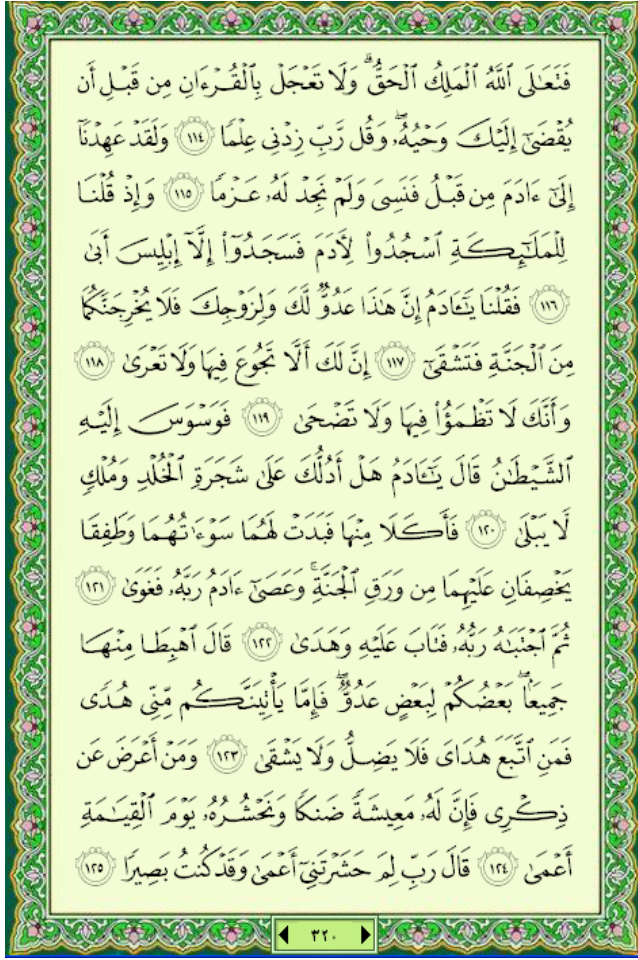 فَتَعَٰلَى ٱللَّهُ ٱلْمَلِكُ ٱلْحَقُّ ۗ وَلَا تَعْجَلْ بِٱلْقُرْءَانِ مِن قَبْلِ أَن
يُقْضَىٰٓ إِلَيْكَ وَحْيُهُۥ ۖ وَقُل رَّبِّ زِدْنِى عِلْمًا ﴿١١٤﴾ وَلَقَدْ عَهِدْنَآ
إِلَىٰٓ ءَادَمَ مِن قَبْلُ فَنَسِىَ وَلَمْ نَجِدْ لَهُۥ عَزْمًا ﴿١١٥﴾ وَإِذْ قُلْنَا
لِلْمَلَٰٓئِكَةِ ٱسْجُدُوا۟ لِأَدَمَ فَسَجَدُوٓا۟ إِلَّآ إِبْلِيسَ أَبَىٰ
﴿١١٦﴾ فَقُلْنَا يَٰٓـَٔادَمُ إِنَّ هَٰذَا عَدُوٌّ لَّكَ وَلِزَوْجِكَ فَلَا يُخْرِجَنَّكُمَا
مِنَ ٱلْجَنَّةِ فَتَشْقَىٰٓ ﴿١١٧﴾ إِنَّ لَكَ أَلَّا تَجُوعَ فِيهَا وَلَا تَعْرَىٰ ﴿١١٨﴾
وَأَنَّكَ لَا تَظْمَؤُا۟ فِيهَا وَلَا تَضْحَىٰ ﴿١١٩﴾ فَوَسْوَسَ إِلَيْهِ
ٱلشَّيْطَٰنُ قَالَ يَٰٓـَٔادَمُ هَلْ أَدُلُّكَ عَلَىٰ شَجَرَةِ ٱلْخُلْدِ وَمُلْكٍ
لَّا يَبْلَىٰ ﴿١٢٠﴾ فَأَكَلَا مِنْهَا فَبَدَتْ لَهُمَا سَوْءَٰتُهُمَا وَطَفِقَا
يَخْصِفَانِ عَلَيْهِمَا مِن وَرَقِ ٱلْجَنَّةِ ۚ وَعَصَىٰٓ ءَادَمُ رَبَّهُۥ فَغَوَىٰ ﴿١٢١﴾
ثُمَّ ٱجْتَبَٰهُ رَبُّهُۥ فَتَابَ عَلَيْهِ وَهَدَىٰ ﴿١٢٢﴾ قَالَ ٱهْبِطَا مِنْهَا
جَمِيعًۢا ۖ بَعْضُكُمْ لِبَعْضٍ عَدُوٌّ ۖ فَإِمَّا يَأْتِيَنَّكُم مِّنِّى هُدًى
فَمَنِ ٱتَّبَعَ هُدَاىَ فَلَا يَضِلُّ وَلَا يَشْقَىٰ ﴿١٢٣﴾ وَمَنْ أَعْرَضَ عَن
ذِكْرِى فَإِنَّ لَهُۥ مَعِيشَةً ضَنكًا وَنَحْشُرُهُۥ يَوْمَ ٱلْقِيَٰمَةِ
أَعْمَىٰ ﴿١٢٤﴾ قَالَ رَبِّ لِمَ حَشَرْتَنِىٓ أَعْمَىٰ وَقَدْ كُنتُ بَصِيرًا ﴿١٢٥﴾
٣٢٠